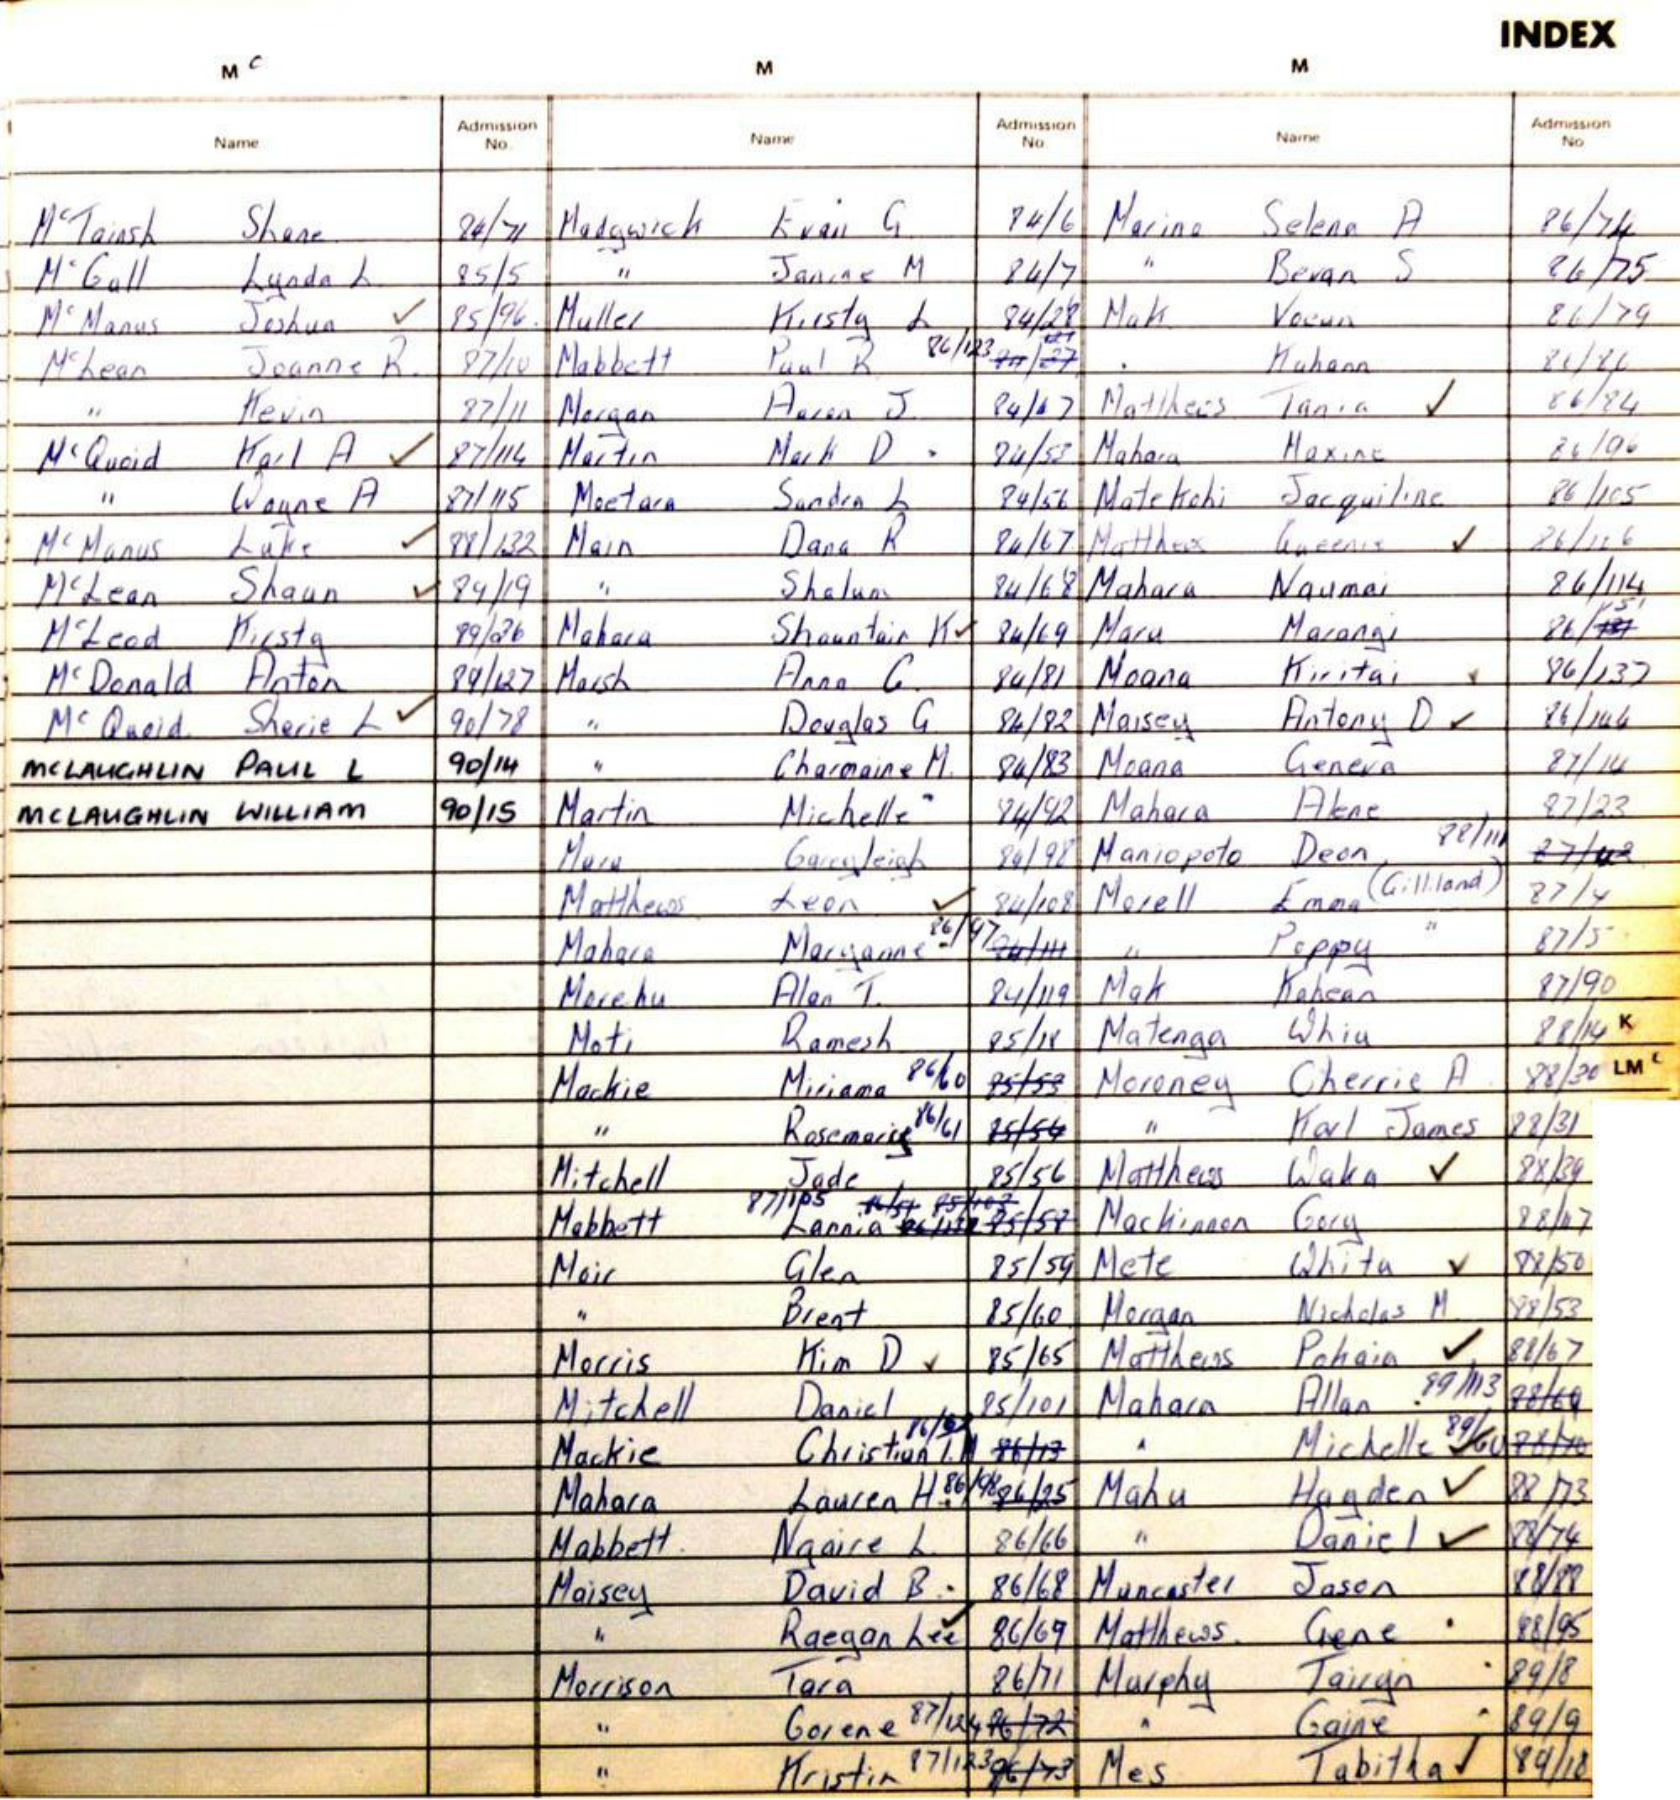 INDEX
Mc M M
Name Admission No Name Admission No Name Admission No
McTainsh Shane 84/71 Madgwick Evan G 84/6 Marino Selena A 86/74
McGall Lynda L 85/5 " Janine M 84/7 " Bevan S 86/75
McManus Joshua ✓ 85/96 Muller Kirsty L 84/28 Mak Voeun 86/79
McLean Joanne R. 87/10 Mabbett Paul R 86/123 Kuhann
" Kevin 87/11 Morgan Aaron J Matthews Tania ✓ 86/84
McQuoid Karl A ✓ 87/114 Martin Mark D 84/53 Mahara Maxine 86/96
" Wayne A 87/115 Moetara Sandra L 84/56 Matekohi Jacquiline 86/105
McManus Luke ✓ 88/132 Main Dana R 84/67 Matthews Queenie ✓
McLean Shaun ✓ 89/19 " Shalum 84/68 Mahara Naumai 86/114
McLeod Kirsty 89/26 Mahara Shauntain K ✓ 84/69 Maru Marangi 86/
McDonald Anton 89/127 Marsh Anna C. 84/81 Moana Kiritai 86/137
McQuoid Sherie L ✓ 90/78 " Douglas G 84/82 Maisey Antony D ✓ 86/146
MCLAUGHLIN PAUL L 90/14 " Charmaine M. 84/83 Moana Geneva 87/14
MCLAUGHLIN WILLIAM 90/15 Martin Michelle 84/92 Mahara Alene 87/23
Maru Gareyleigh 84/98 Maniopoto Deon 88/111 87/42
Matthews Leon ✓ 84/108 Morell Emma (Gilliland) 87/4
Mahara Maryanne 86/97 84/111 " Poppy " 87/5
Morehu Alan T. 84/119 Mak Kahean 87/90
Moti Ramesh 85/18 Matenga Whiu 88/14 K
Mackie Miriama 86/60 85/53 Moroney Cherrie A 88/30 LMc
" Rosemarie 86/61 85/54 " Karl James 88/31
Mitchell Jade 85/56 Matthews Waka ✓ 88/39
Mabbett Lannia 87/105 85/58 Mackinnon Gory 88/47
Moir Glen 85/59 Mete Whita ✓ 88/50
" Brent 85/60 Morgan Nicholas M 88/53
Morris Kim D ✓ 85/65 Matthews Pohaia ✓ 88/67
Mitchell Daniel 85/101 Mahara Allan 89/113 88/69
Mackie Christian 86/13 " Michelle ✓ 88/70
Mahara Lauren H. 86/98 86/25 Mahu Hayden ✓ 88/73
Mabbett Ngaire L 86/66 " Daniel ✓ 88/74
Maisey David B. 86/68 Muncaster Jason 88/88
" Raegan Lee ✓ 86/69 Matthews Gene 88/95
Morrison Tara 86/71 Murphy Tairyn 89/8
" Gorene 87/124 86/72 " Gaine 89/9
" Kristin 87/123 86/73 Mes Tabitha ✓ 89/18